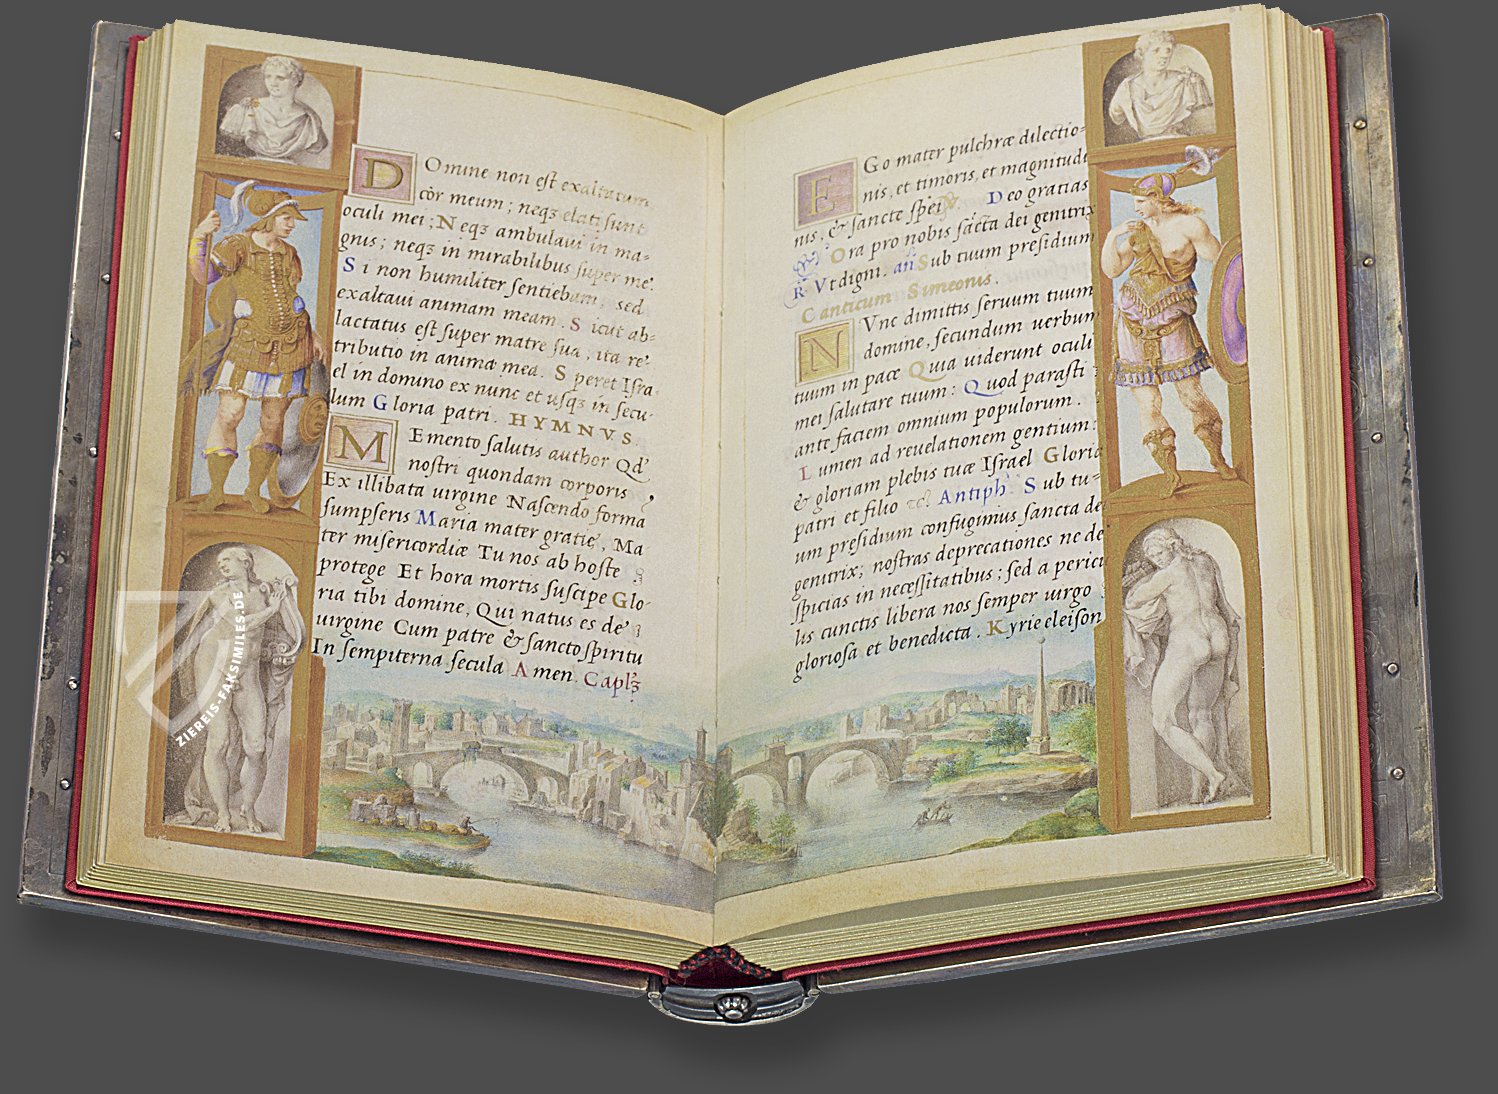 DOmine non est exaltatum
còr meum; neqȝ elati sunt
oculi mei; Neqȝ ambulaui in ma-
gnis; neqȝ in mirabilibus super me.
Si non humiliter sentiebam, sed
exaltaui animam meam. Sicut ab-
lactatus est super matre sua, ita re-
tributio in anima mea. Speret Isra
el in domino ex nunc et usqȝ in secu-
lum Gloria patri. HYMNVS.
MEmento salutis author Qd'
nostri quondam corporis,
Ex illibata uirgine Nascendo forma
sumpseris Maria mater gratie, Ma
ter misericordiæ Tu nos ab hoste
protege Et hora mortis suscipe Glo-
ria tibi domine, Qui natus es de
uirgine Cum patre & sancto spiritu
In sempiterna secula Amen. Caplȝ
EGo mater pulchræ dilectio-
nis, et timoris, et magnitudi
nis, & sancte spei. Deo gratias
Ora pro nobis sācta dei genitrix
R. Vt digni. añ Sub tuum presidium
Canticum Simeonis.
NVnc dimittis seruum tuum
domine, secundum uerbum
tuum in pace Quia uiderunt oculi
mei salutare tuum: Quod parasti
ante faciem omnium populorum.
Lumen ad reuelationem gentium:
& gloriam plebis tuæ Israel Gloria
patri et filio Antiph. Sub tu-
um presidium confugimus sancta dei
genitrix; nostras deprecationes ne de
spicias in necessitatibus; sed a pericu
lis cunctis libera nos semper uirgo
gloriosa et benedicta. Kyrie eleison
ZIEREIS-FAKSIMILES.DE